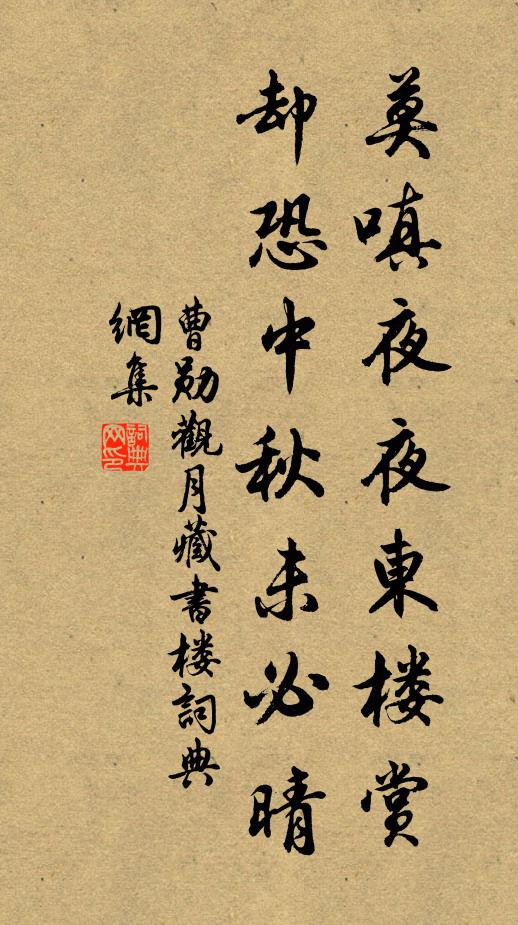 莫嗔夜夜東楼赏
却恐中秋未必晴
曹勛觀月藏書楼詞典
網集
詞典
网印